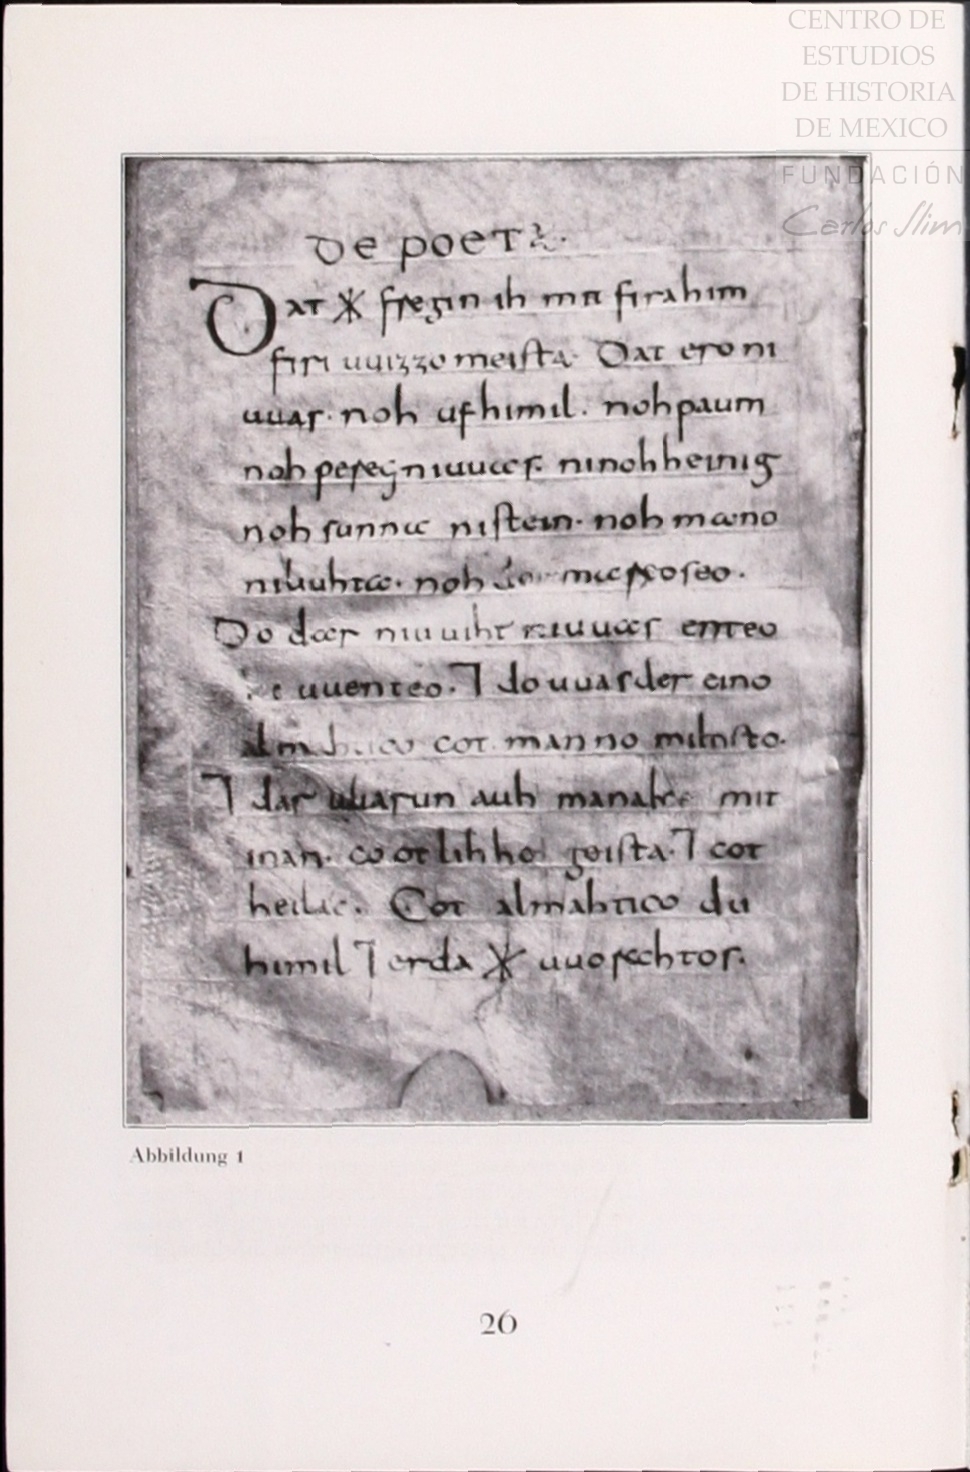 CENTRO DE
ESTUDIOS
DE HISTORIA
DE MEXICO
FUNDACIÓN
Carlos Slim
De poeta·
Dat * fregin ih mit firahim
firi uuizzo meista· Dat ero ni
uuas· noh ufhimil· noh paum
noh pereg ni uuas· ni nohheinig
noh sunna ni stein· noh mano
ni liuhta· noh der mareo seo·
Do dar niuuiht ni uuas enteo
ni uuenteo· ⁊ do uuas der eino
almahtico cot manno miltisto·
⁊ dar uuarun auh manake mit
inan· cootlihho geista· ⁊ cot
heilac· Cot almahtico du
himil ⁊ erda * uuorahtos·
Abbildung 1
26